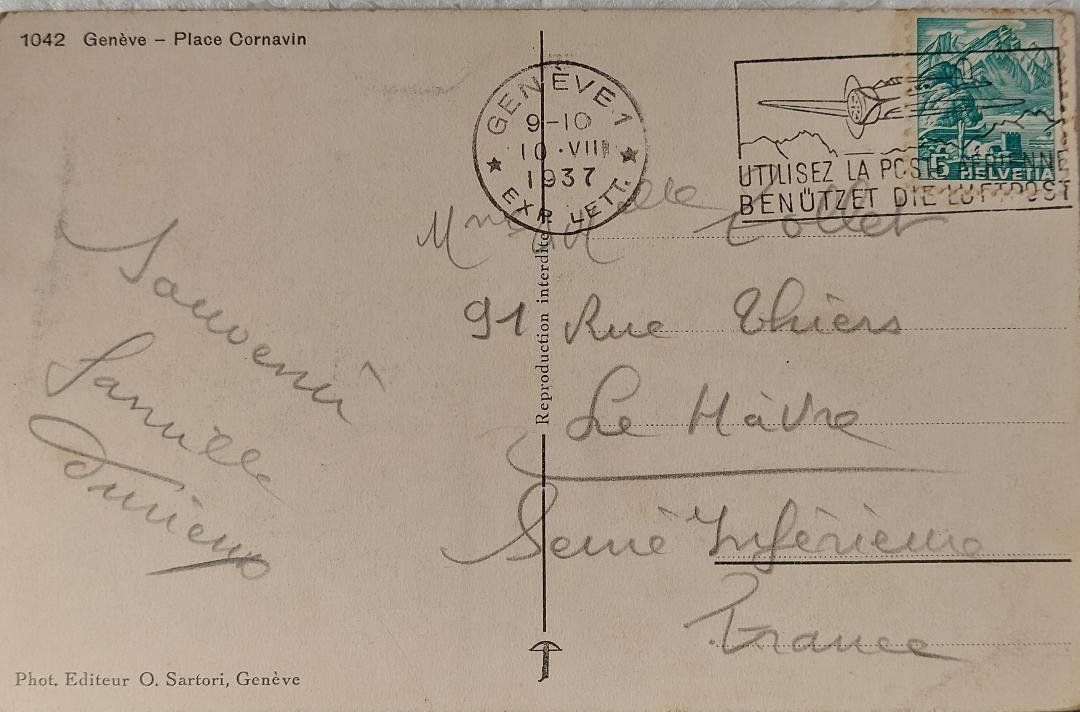 1042 Genève – Place Cornavin
GENÈVE 1
9-10
10.VIII
1937
EXP. LETT.
UTILISEZ LA POSTE AÉRIENNE
BENÜTZET DIE LUFTPOST
5 HELVETIA
Souvenir
Famille
Mme Melle Tollet
91 Rue Thiers
Le Hàvre
Seine Inférieure
France
Reproduction interdite
Phot. Editeur O. Sartori, Genève